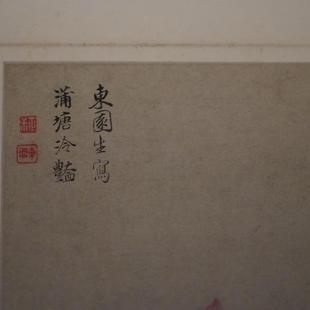 東園生寫
蒲塘冷艷